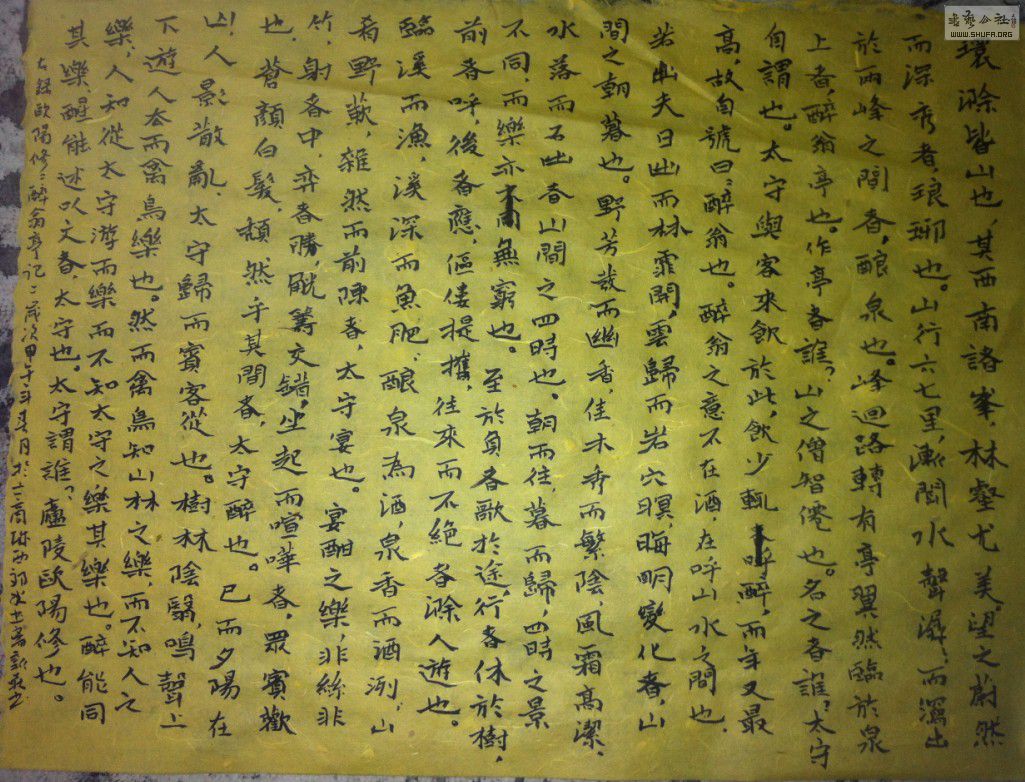 環滁皆山也,其西南諸峯,林壑尤美。望之蔚然
而深秀者,琅琊也。山行六七里,漸聞水聲潺〻,而瀉出
於兩峰之間者,釀泉也。峰迴路轉有亭翼然臨於泉
上者,醉翁亭也。作亭者誰?山之僧智僊也。名之者誰?太守
自謂也。太守與客來飲於此,飲少輒醉,而年又最
高,故自號曰:醉翁也。醉翁之意不在酒,在呼山水之間也,
若出夫日出而林霏開,雲歸而岩穴暝,晦明變化者,山
間之朝暮也。野芳發而幽香,佳木秀而繁陰,風霜高潔,
水落而石出者山間之四時也。朝而往,暮而歸,四時之景
不同,而樂亦無窮也。至於負者歌於途,行者休於樹,
前者呼,後者應,傴僂提攜,往來而不絕者滁人遊也。
臨溪而漁,溪深而魚肥,釀泉為酒,泉香而酒洌,山
肴野蔌,雜然而前陳者,太守宴也。宴酣之樂,非絲非
竹,射者中,弈者勝,觥籌交錯,坐起而喧嘩者,眾賓歡
也,蒼顏白髮,頹然乎其間者,太守醉也。已而夕陽在
山,人影散亂,太守歸而賓客從也。樹林陰翳,鳴聲上
下,遊人去而禽鳥樂也。然而禽鳥知山林之樂而不知人之
樂,人知從太守游而樂而不知太守之樂其樂也。醉能同
其樂,醒能述以文者,太守也。太守謂誰?廬陵歐陽修也。
右録歐陽修:醉翁亭記:歲次甲午
書藝公社
WWW.SHUFA.ORG